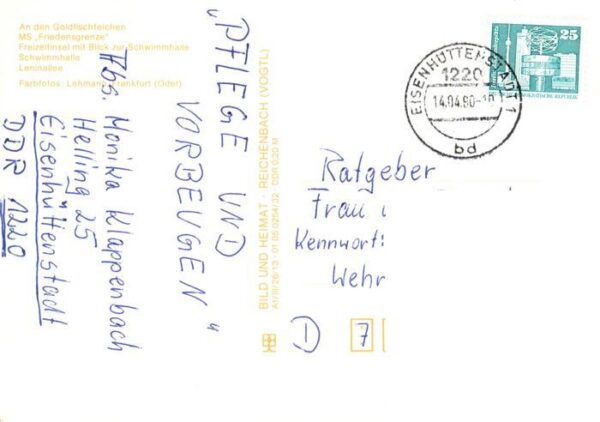 An den Goldfischteichen
MS „Friedensgrenze"
Freizeitinsel mit Blick zur Schwimmhalle
Schwimmhalle
Leninallee
Farbfotos: Lehmann, Frankfurt (Oder)
Abs. Monika Klappenbach
Helling 25
Eisenhüttenstadt
DDR 1220
„PFLEGE UND
VORBEUGEN"
BILD UND HEIMAT · REICHENBACH (VOGTL)
A1/III/26/13 · 01 05 0254/32 · DDR 0,20 M
25
EISENHÜTTENSTADT 1
1220
14.04.90-10
bd
Ratgeber
Frau
Kennwort:
Wehr
D 7